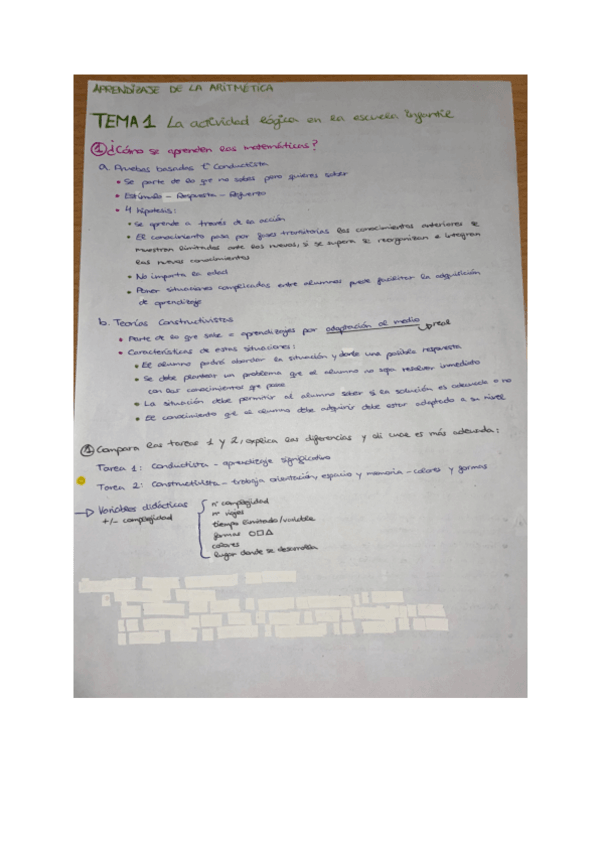 APRENDIZAJE DE LA ARITMÉTICA
TEMA 1 La actividad lógica en la escuela infantil
① ¿Cómo se aprenden las matemáticas?
a. Pruebas basadas Tª Conductista
• Se parte de lo que no sabes para quieres saber
• Estímulo - Respuesta - Refuerzo
• 4 hipótesis:
• Se aprende a través de la acción
• El conocimiento pasa por fases transitorias los conocimientos anteriores se
muestran limitados ante los nuevos, si se supera se reorganizan e integran
los nuevos conocimientos
• No importa la edad
• Poner situaciones complicadas entre alumnos puede facilitar la adquisición
de aprendizaje
b. Teorías Constructivistas
• Parte de lo que sabe a aprendizajes por adaptación al medio
real
• Características de estas situaciones:
• El alumno podrá abordar la situación y darle una posible respuesta
• Se debe plantear un problema que el alumno no sepa resolver inmediato
con los conocimientos que posee
• La situación debe permitir al alumno saber si la solución es adecuada o no
• El conocimiento que el alumno debe adquirir debe estar adaptado a su nivel
Compara las tareas 1 y 2, explica las diferencias y di cual es más adecuada:
Tarea 1: Conductista - aprendizaje significativo
Tarea 2: Constructivista - trabaja orientación, espacio y memoria - colores y formas
→ Variables didácticas
+/- complejidad
nº complejidad
nº viajes
tiempo limitado/variable
formas ○□△
colores
lugar donde se desarrolla